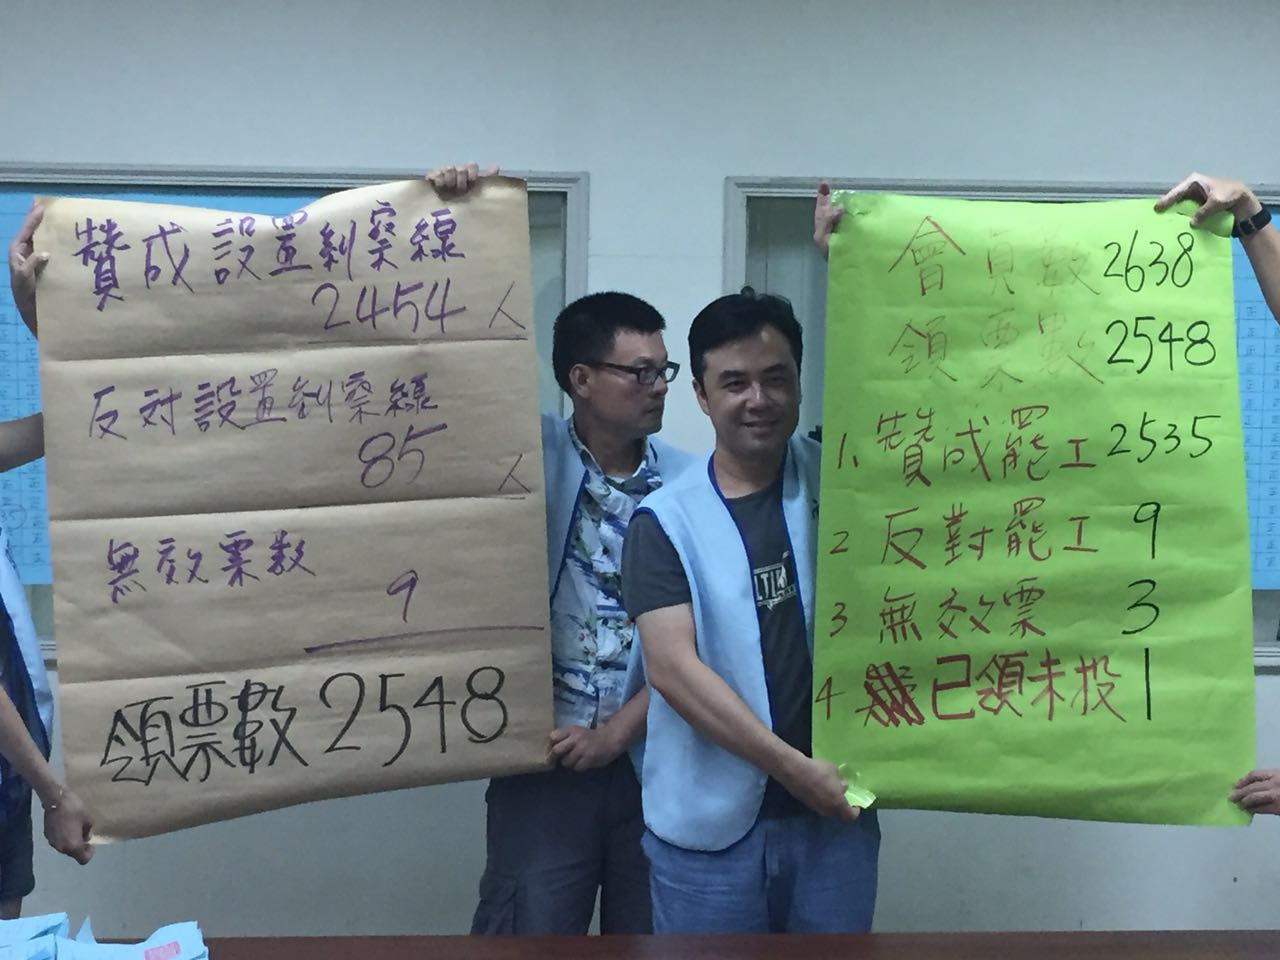 贊成設置糾察線
2454人
反対設置糾察線
85人
無效票数
9
領票數2548
會員數2638
領票數2548
1、贊成罷工2535
2 反對罷工 9
3 無效票 3
4 已領未投 1